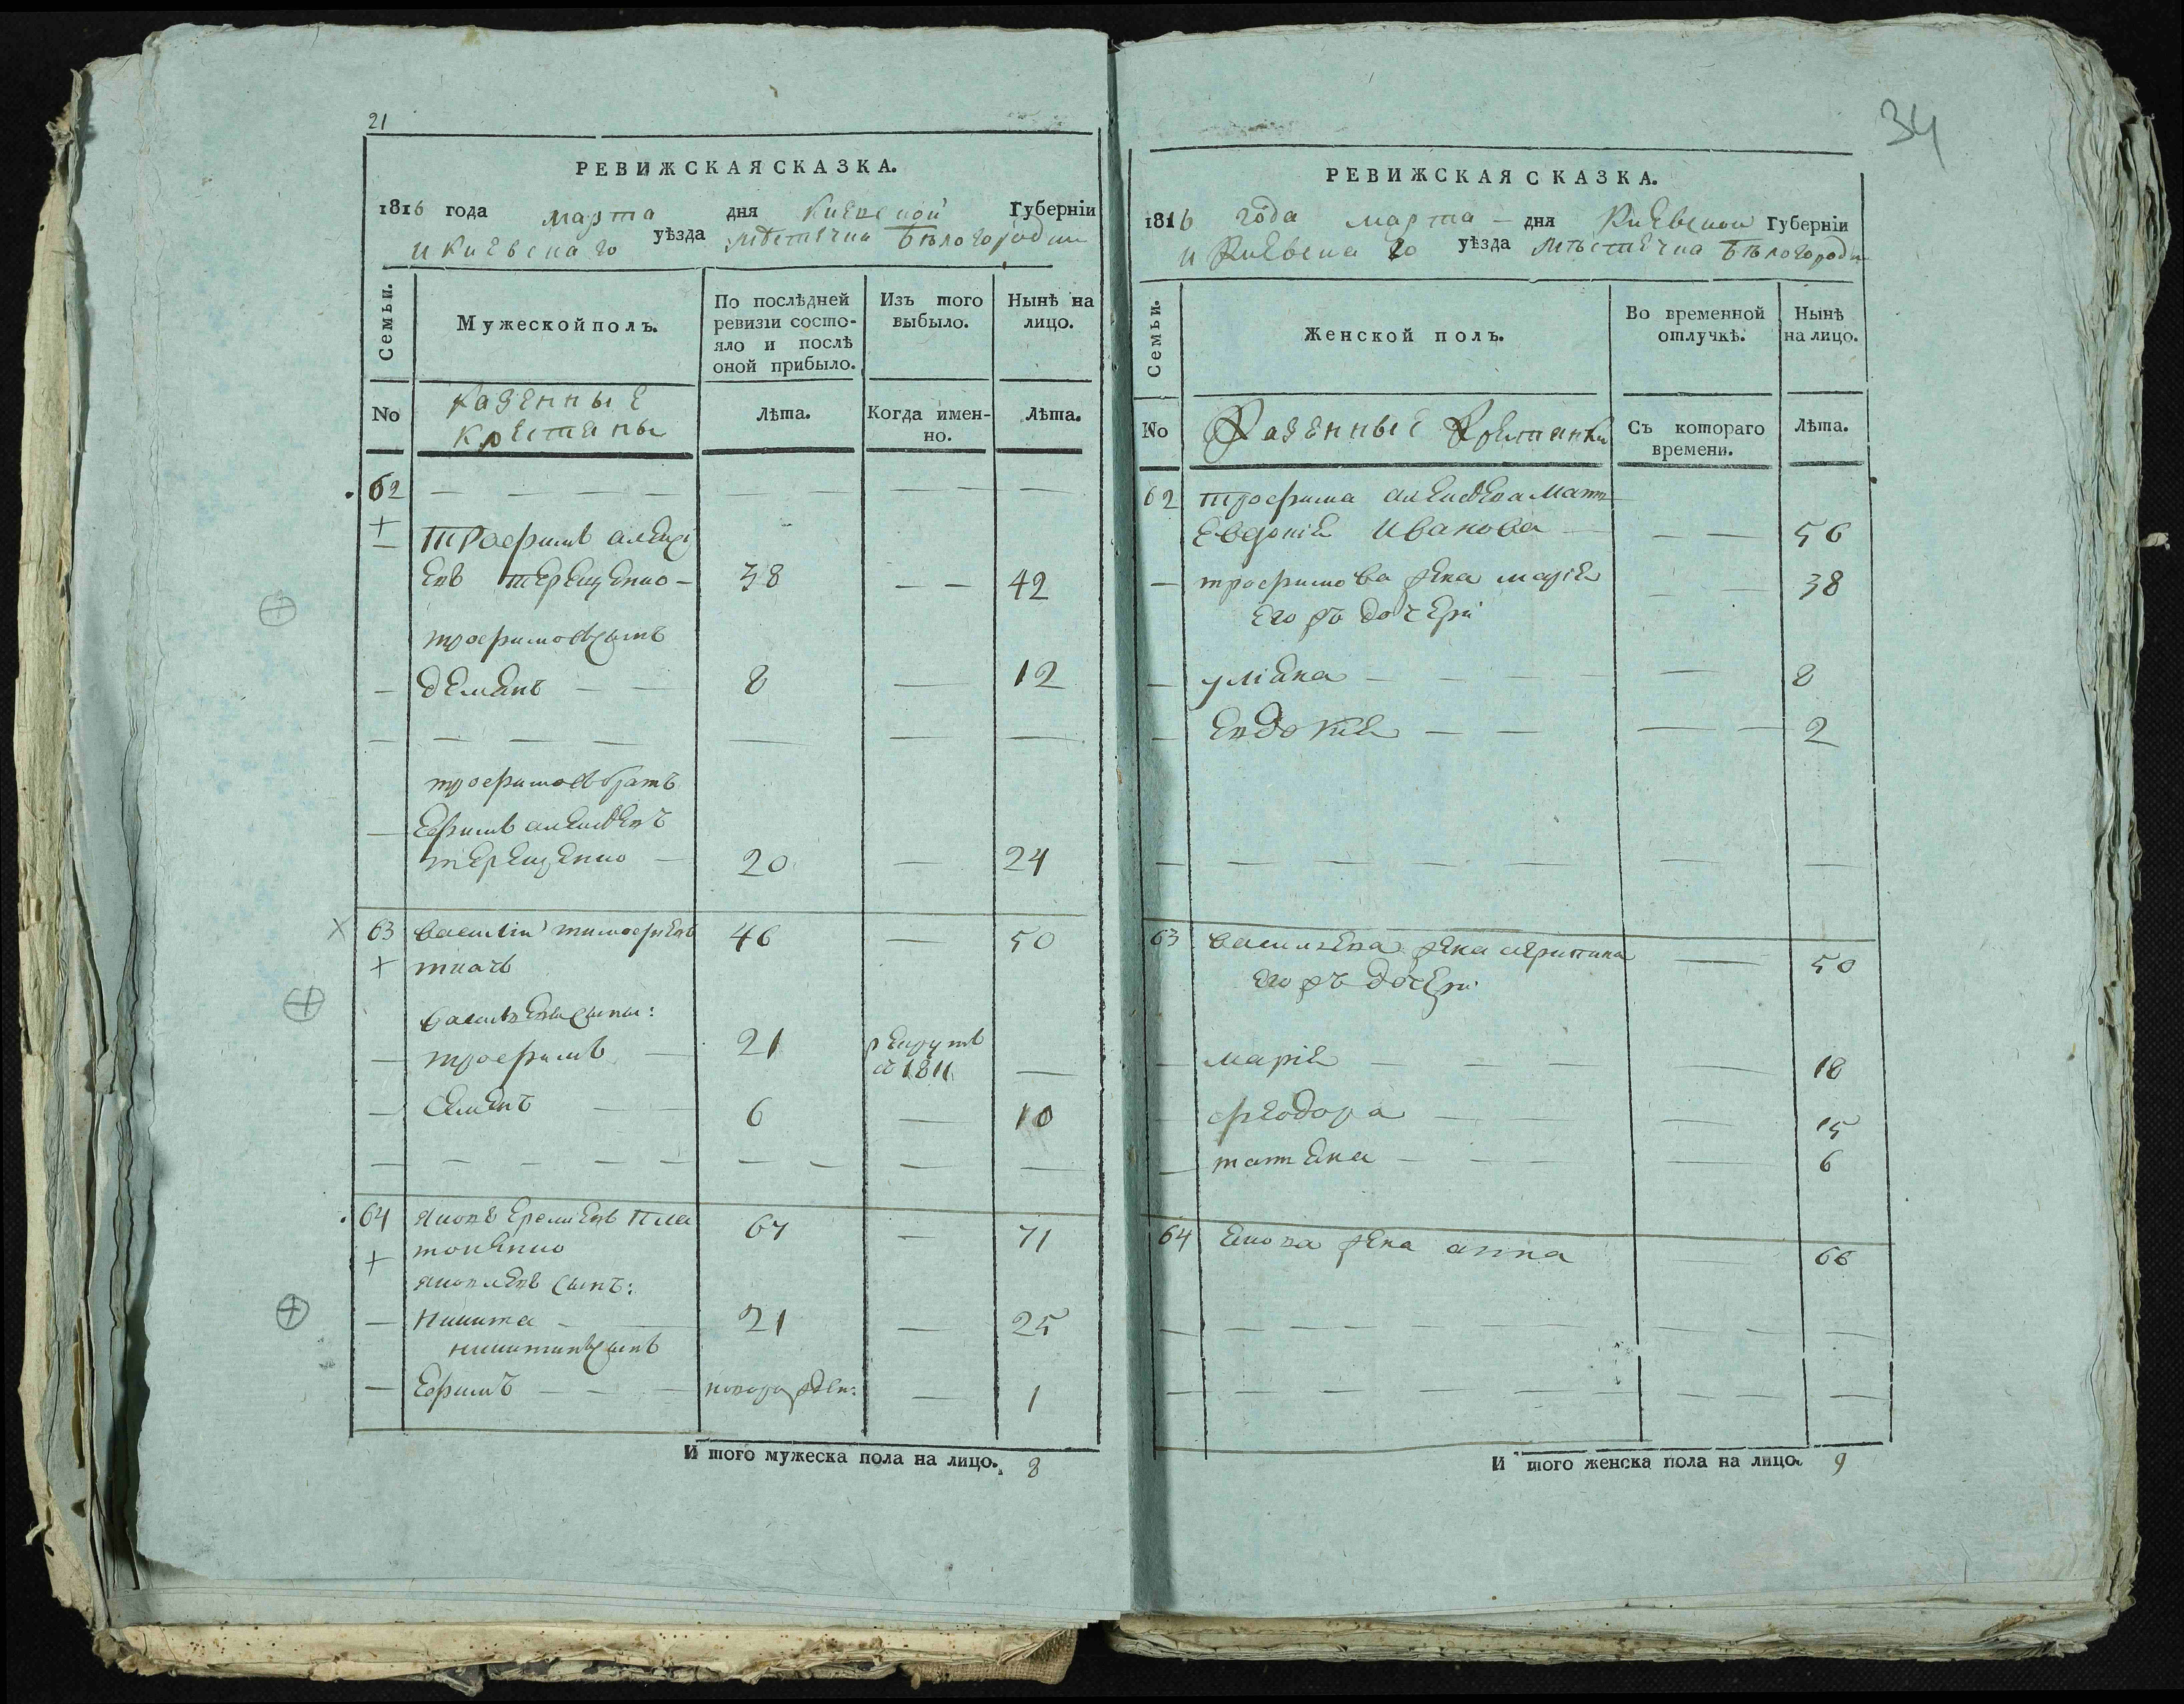 21
РЕВИЖСКАЯ СКАЗКА.
1816 года марта дня Киевской Губерніи
и Киевскаго уѣзда мѣстечка Бѣлогородки
Семьи.
Мужеской полъ.
По послѣдней ревизіи состояло и послѣ оной прибыло.
Изъ того выбыло.
Нынѣ на лицо.
No
Казенные
крестяны
Лѣта.
Когда именно.
Лѣта.
62
Трофимъ алексі
евъ терещенко 38 42
трофимовъ сынъ
демянъ 8 12
трофимовъ братъ
Ефимъ алексѣевъ
терещенко 20 24
63 василій тимофѣевъ 46 50
ткачъ
васильевы сыны:
трофимъ 21 рекрутъ
в 1811
семенъ 6 10
64 яковъ еремѣевъ Пла 67 71
тоненко
яковлевъ сынъ:
никита 21 25
никитинъ сынъ
Ефимъ новорожден: 1
И того мужеска пола на лицо. 8
34
РЕВИЖСКАЯ СКАЗКА.
1816 года марта дня Киевской Губерніи
и Киевскаго уѣзда мѣстечка Бѣлогородки
Семьи.
Женской полъ.
Во временной отлучкѣ.
Нынѣ на лицо.
No
Казенные Крестянки
Съ котораго времени.
Лѣта.
62 трофима алексѣева мать
Евдокія Иванова 56
трофимова жена марія 38
его жъ дочери
уліяна 8
Евдокія 2
63 васильева жена агрипина 50
его жъ дочери
марія 18
феодора 15
татіяна 6
64 якова жена анна 66
И того женска пола на лицо. 9